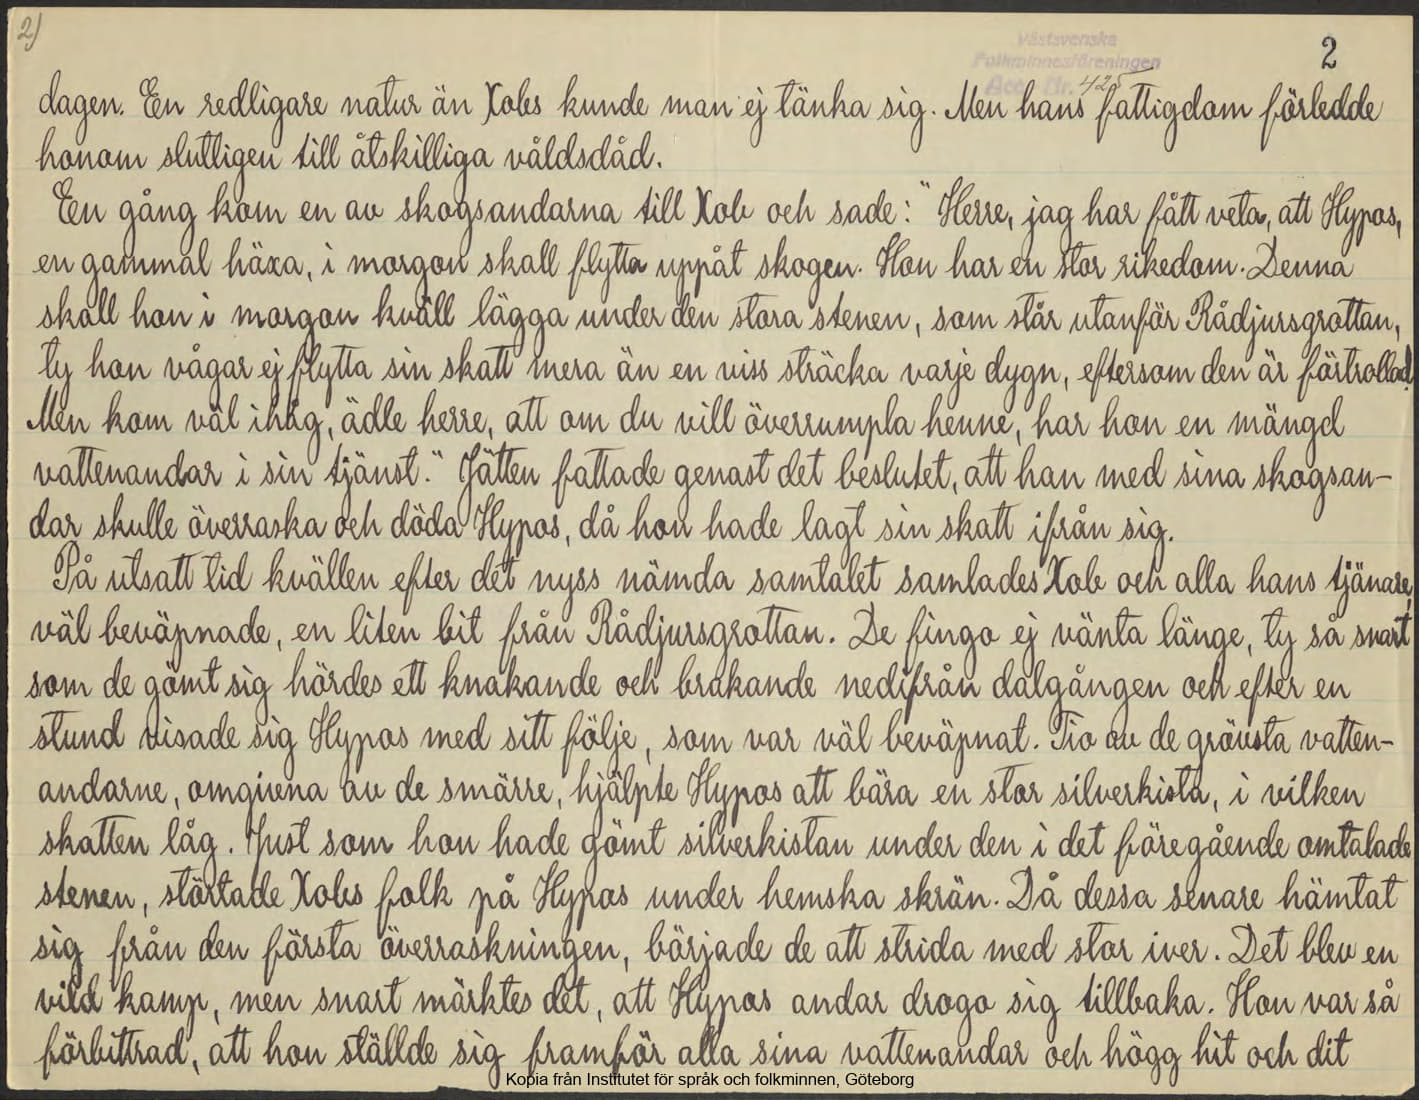 2)
Västsvenska
Folkminnesföreningen
Acc. Nr. 425
2
dagen. En redligare natur än Xobs kunde man ej tänka sig. Men hans fattigdom förledde
honom slutligen till åtskilliga våldsdåd.
En gång kom en av skogsandarna till Xob och sade: "Herre, jag har fått veta, att Hypos,
en gammal häxa, i morgon skall flytta uppåt skogen. Hon har en stor rikedom. Denna
skall hon i morgon kväll lägga under den stora stenen, som står utanför Rådjursgrottan,
ty hon vågar ej flytta sin skatt mera än en viss sträcka varje dygn, eftersom den är förtrollad.
Men kom väl ihåg, ädle herre, att om du vill överrumpla henne, har hon en mängd
vattenandar i sin tjänst." Jätten fattade genast det beslutet, att han med sina skogsan-
dar skulle överraska och döda Hypos, då hon hade lagt sin skatt ifrån sig.
På utsatt tid kvällen efter det nyss nämda samtalet samlades Xob och alla hans tjänare,
väl beväpnade, en liten bit från Rådjursgrottan. De fingo ej vänta länge, ty så snart
som de gömt sig hördes ett knakande och brakande nedifrån dalgången och efter en
stund visade sig Hypos med sitt följe, som var väl beväpnat. Tio av de grövsta vatten-
andarne, omgivna av de smärre, hjälpte Hypos att bära en stor silverkista, i vilken
skatten låg. Just som hon hade gömt silverkistan under den i det föregående omtalade
stenen, störtade Xobs folk på Hypos under hemska skrän. Då dessa senare hämtat
sig från den första överraskningen, började de att strida med stor iver. Det blev en
vild kamp, men snart märktes det, att Hypos andar drogo sig tillbaka. Hon var så
förbittrad, att hon ställde sig framför alla sina vattenandar och högg hit och dit
Kopia från Institutet för språk och folkminnen, Göteborg